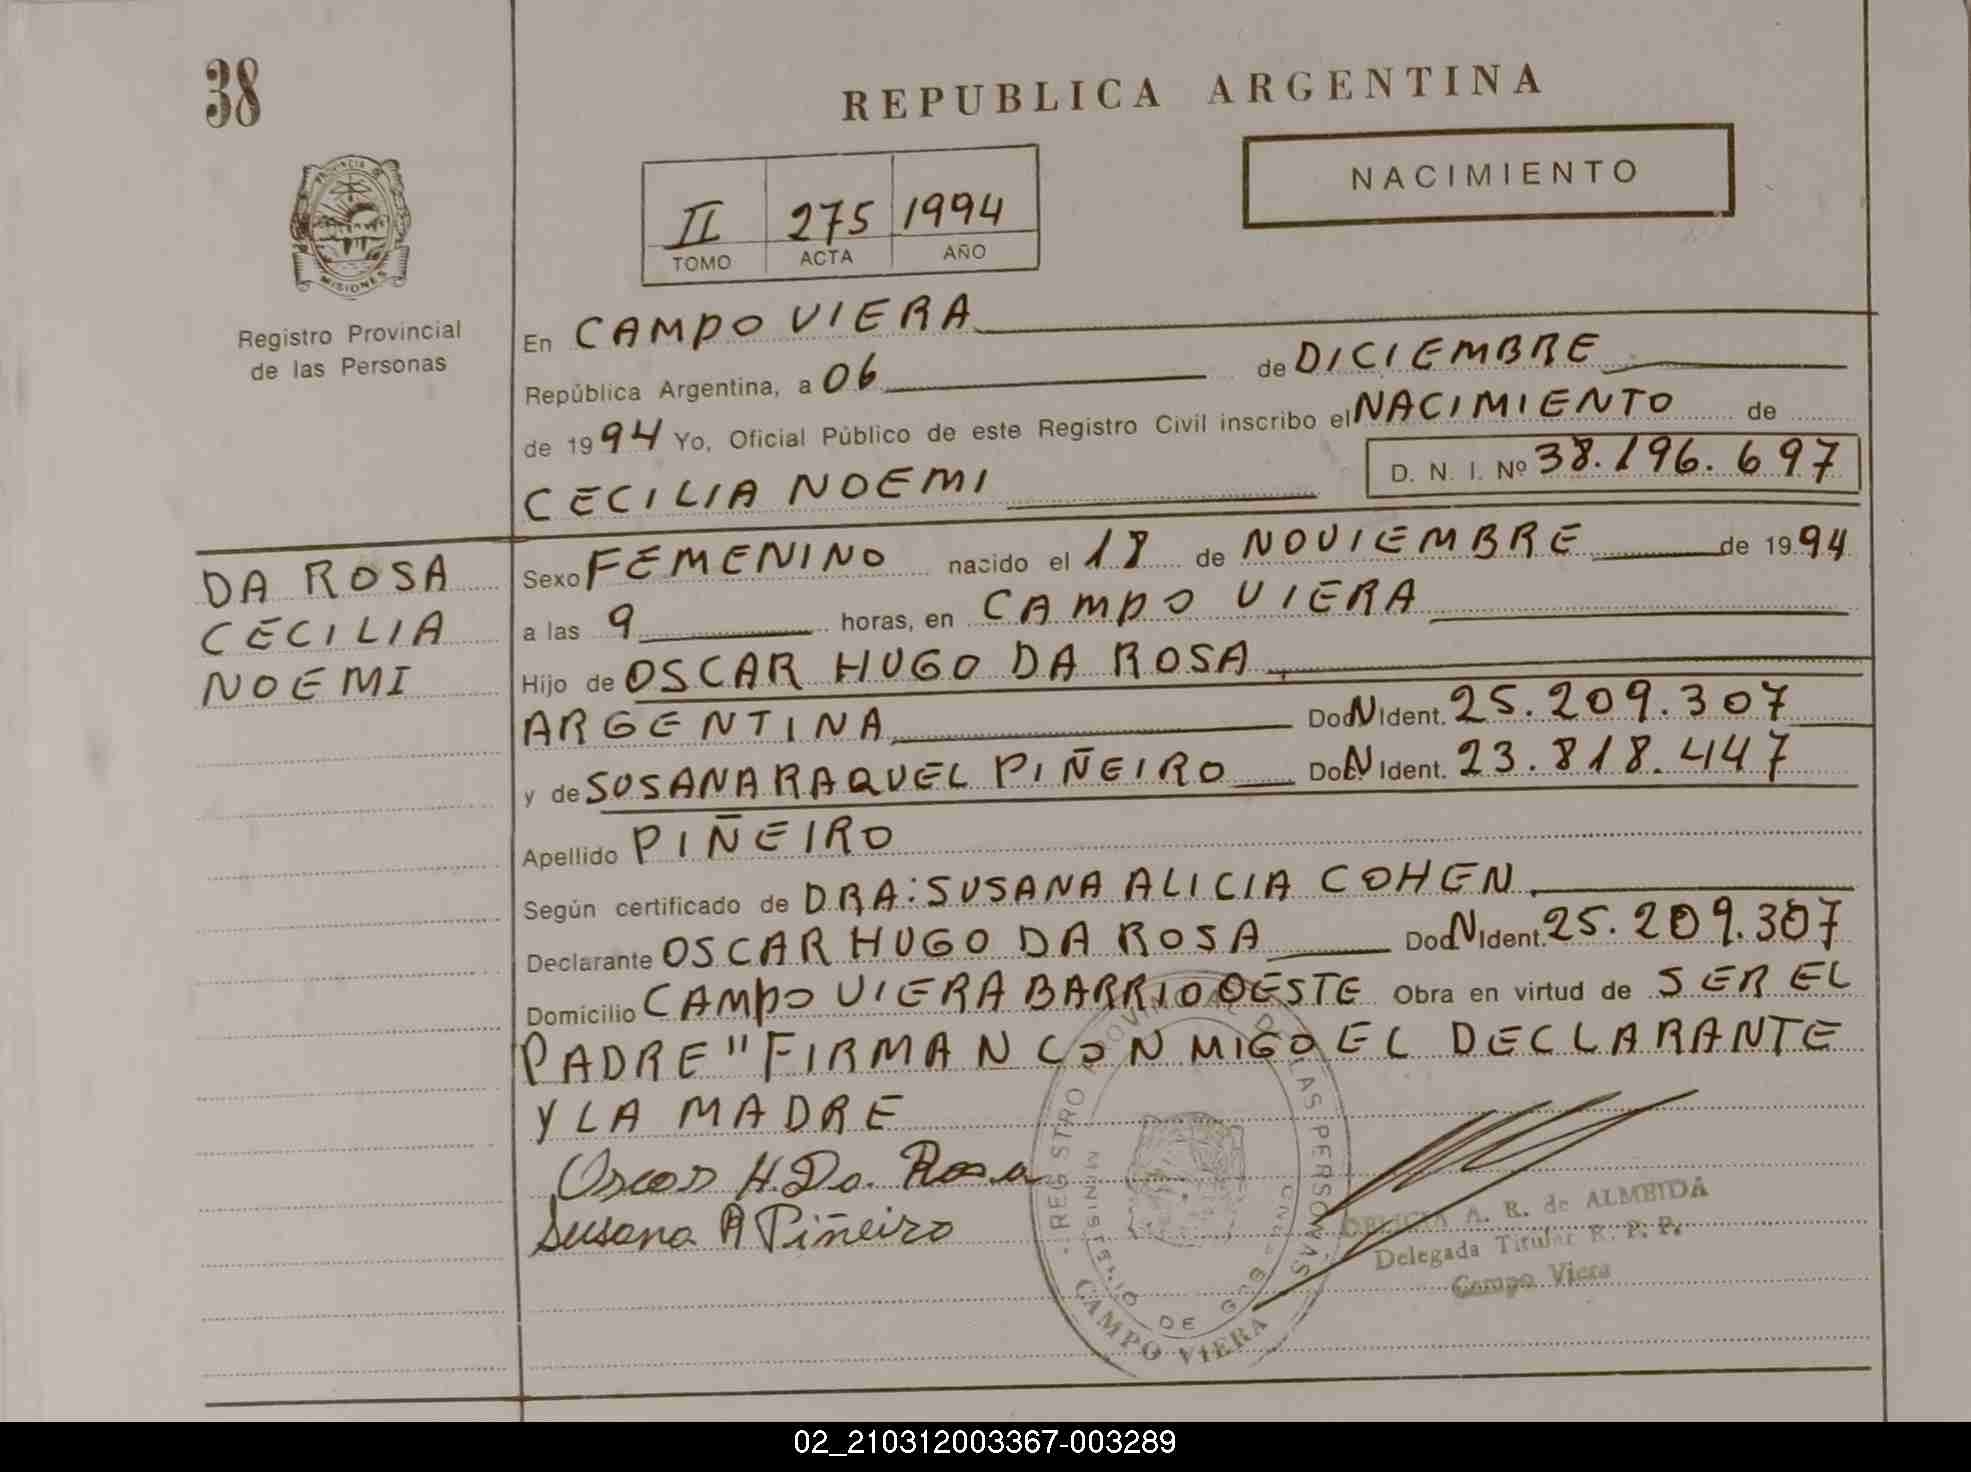 38
REPUBLICA ARGENTINA
NACIMIENTO
PROVINCIA DE
MISIONES
Registro Provincial
de las Personas
II 275 1994
TOMO ACTA AÑO
En CAMPO VIERA
República Argentina, a 06 de DICIEMBRE
de 1994 Yo, Oficial Público de este Registro Civil inscribo el NACIMIENTO de
CECILIA NOEMI D. N. I. Nº 38.196.697
DA ROSA
CECILIA
NOEMI
Sexo FEMENINO nacido el 18 de NOVIEMBRE de 1994
a las 9 horas, en CAMPO VIERA
Hijo de OSCAR HUGO DA ROSA
ARGENTINA Doc N Ident. 25.209.307
y de SUSANA RAQUEL PIÑEIRO Doc N Ident. 23.818.447
Apellido PIÑEIRO
Según certificado de DRA: SUSANA ALICIA COHEN
Declarante OSCAR HUGO DA ROSA Doc N Ident. 25.209.307
Domicilio CAMPO VIERA BARRIO OESTE Obra en virtud de SER EL
PADRE " FIRMAN CONMIGO EL DECLARANTE
Y LA MADRE
Oscar H. Da. Rosa
Susana R Piñeiro
REGISTRO PROVINCIAL DE LAS PERSONAS
MINISTERIO DE GOB
CAMPO VIERA
DELICIA A. R. de ALMEIDA
Delegada Titular R. P. P.
Campo Viera
02_210312003367-003289